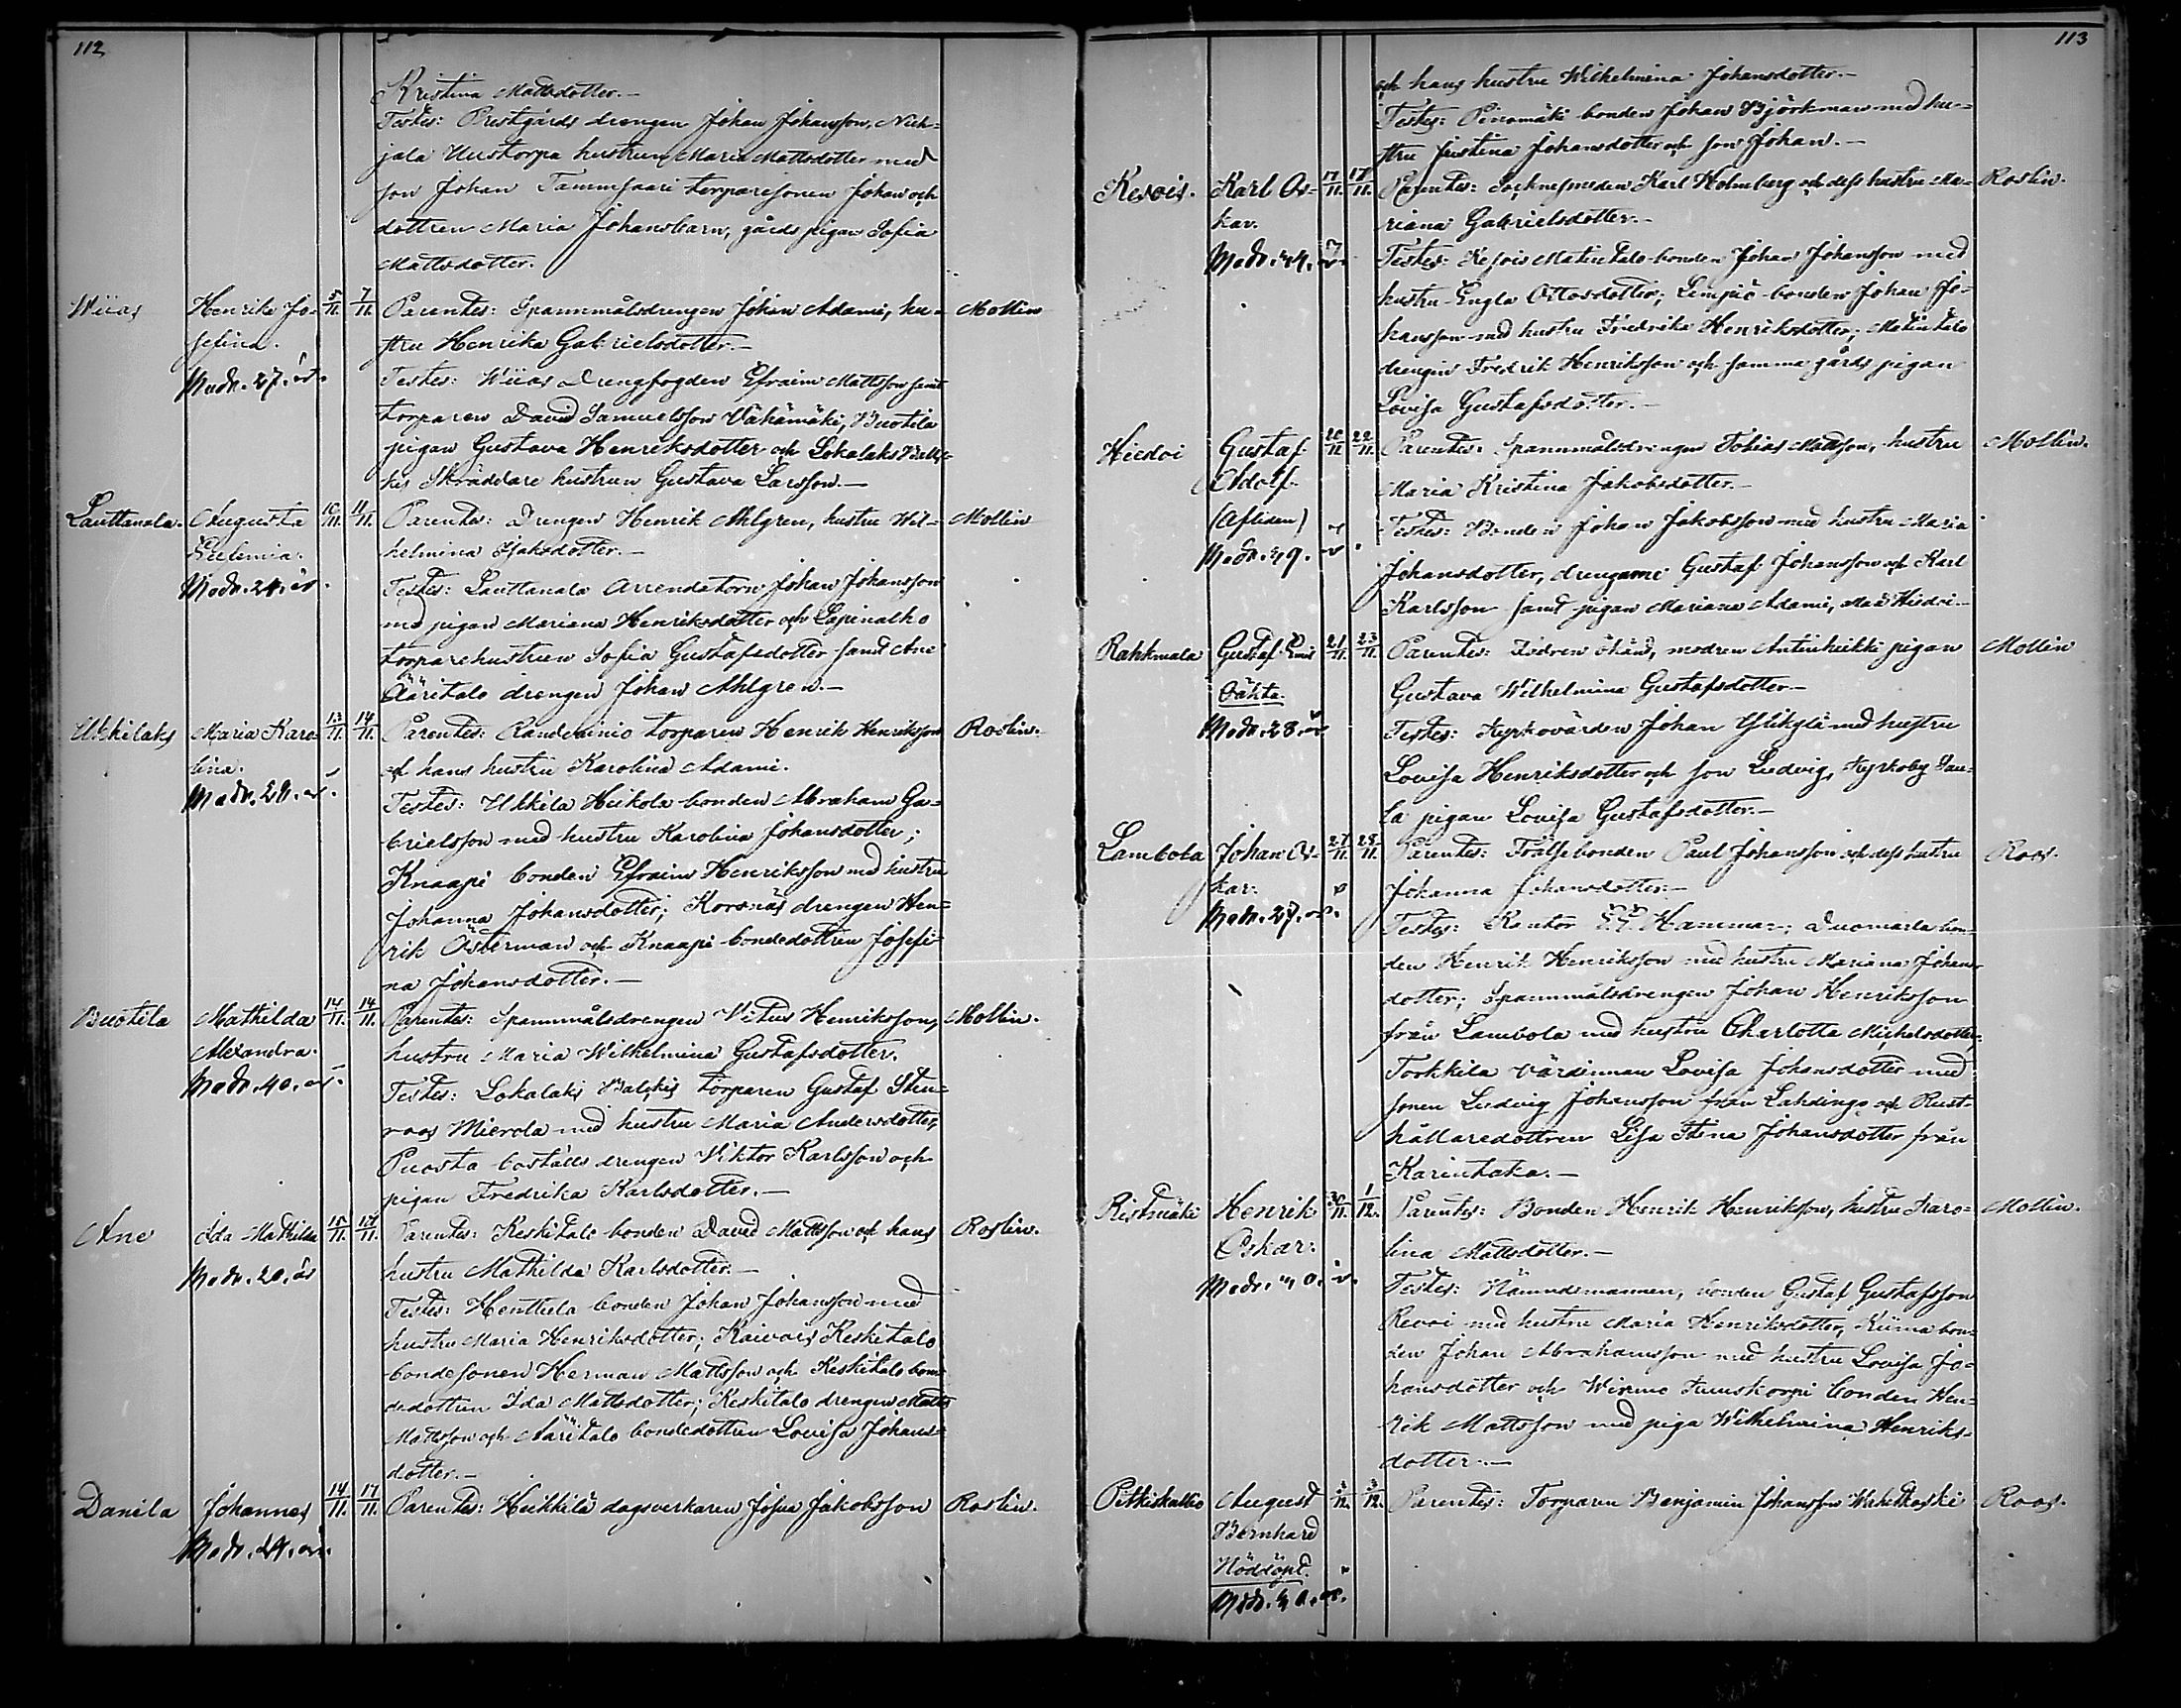 112
Kristina Mattsdotter.—
Testes: Prestgårds drengen Johan Johansson,
jala hustrun Maria Mattsdotter med
son Johan Tammsaari torparesonen Johan och
dottren Maria Johansbarn, gårds pigan Sofia
Mattsdotter.
Wiias Henrika Jo- 5/11. 7/11. Parentes: Spannmålsdrengen Johan Adami, hu- Mollin
sefina. stru Henrika Gabrielsdotter.—
Modr. 27. år. Testes: Wiias Drengfogden Efraim Mattsson samt
torparen David Samuelsson Vähämäki, Buotila
pigan Gustava Henriksdotter och Lokalaks
Skräddare hustrun Gustava Larsson.—
Lauttanala. Augusta 10/11. 11/11. Parentes: Drengen Henrik Ahlgren, hustru Wil- Mollin
helmina Isaksdotter.—
Modr. 24. år. Testes: Lauttanala Arrendatorn Johan Johansson
med pigan Mariana Henriksdotter och Lapinalho
torparehustrun Sofia Gustafsdotter samt Ane
Ääritalo drengen Johan Ahlgren.—
Ukkilaks Maria Karo- 13/11. 14/11. Parentes: torparen Henrik Henriksson Roslin.
lina. och hans hustru Karolina Adami.
Modr. 28. år. Testes: Ukkila Heikola bonden Abraham Ga-
brielsson med hustru Karolina Johansdotter;
Knaapi bonden Efraim Henriksson med hustru
Johanna Johansdotter; Korsnäs drengen Hen-
rik Österman och Knaapi bondedottren Josefi-
na Johansdotter.—
Buotila Mathilda 14/11. 14/11. Parentes: Spannmålsdrengen Vitus Henriksson, Mollin.
Alexandra. hustru Maria Wilhelmina Gustafsdotter.
Modr. 40. år. Testes: Lokalaks torparen Gustaf Sten-
roos Mierola med hustru Maria Andersdotter,
Puosta boställs drengen Viktor Karlsson och
pigan Fredrika Karlsdotter.—
Ane Ida Mathilda 15/11. 17/11. Parentes: Keskitalo bonden David Mattsson och hans Roslin.
Modr. 20. år hustru Mathilda Karlsdotter.—
Testes: Henttula bonden Johan Johansson med
hustru Maria Henriksdotter; Kaivois Keskitalo
bondesonen Herman Mattsson och Keskitalo bon-
dedottren Ida Mattsdotter; Keskitalo drengen Matts
Mattsson och Ääritalo bondedottren Lovisa Johans-
dotter.—
Danila Johannes 14/11. 17/11. Parentes: Heikkilä dagsverkaren Josua Jakobsson Roslin.
Modr. 24. år.
113
och hans hustru Wilhelmina Johansdotter.—
Testes: Pinomäki bonden Johan Björkman med hu-
stru Justina Johansdotter och son Johan.—
Kesois. Karl Os- 17/11. 17/11. Parentes: Socknesmeden Karl Holmberg och dess hustru Ma- Roslin.
kar. riana Gabrielsdotter.—
Modr. 44. år. Testes: Kesois Matintalo bonden Johan Johansson med
hustru Engla Ottosdotter; Lempiö bonden Johan Jo-
hansson med hustru Fredrika Henriksdotter; Matintalo
drengen Fredrik Henriksson och samma gårds pigan
Lovisa Gustafsdotter.—
Hiedoi Gustaf 20/11. 22/11. Parentes: Spannmålsdrengen Tobias Mattsson, hustru Mollin.
Adolf. Maria Kristina Jakobsdotter.—
(Afliden) Testes: Bonden Johan Jakobsson med hustru Maria
Johansdotter, drengarne Gustaf Johansson och Karl
Karlsson samt pigan Mariana Adami, alla Hiedoi.—
Rahkmala Gustaf Emil 21/11. 23/11. Parentes: Fadren okänd, modren Antinheikki pigan Mollin
Oäkta. Gustava Wilhelmina Gustafsdotter.—
Modr. 28. år Testes: Kyrkovärden Johan Ylikylä med hustru
Lovisa Henriksdotter och son Ludvig, Kyrkoby
pigan Lovisa Gustafsdotter.—
Lambola Johan Os- 27/11. 28/11. Parentes: Frälsebonden Paul Johansson och dess hustru Roos.
kar. Johanna Johansdotter.—
Modr. 27. år. Testes: Kantor Hammar; bon-
den Henrik Henriksson med hustru Mariana Johans-
dotter; Spannmålsdrengen Johan Henriksson
från Lambola med hustru Charlotta Michelsdotter;
Torkkila värdinnan Lovisa Johansdotter med
sonen Ludvig Johansson från Lahdinge och Rust-
hållaredottren Lisa Stina Johansdotter från
Karintaka.—
Ristmäki Henrik 30/11. 1/12. Parentes: Bonden Henrik Henriksson, hustru Karo- Mollin.
Oskar. lina Mattsdotter.—
Testes: Nämndemannen, bonden Gustaf Gustafsson
Revoi med hustru Maria Henriksdotter, Kiima bon-
den Johan Abrahamsson med hustru Lovisa Jo-
hansdotter och Wirmo bonden Hen-
rik Mattsson med piga Wilhelmina Henriks-
dotter.—
Pitkiskallio August 3/12. 3/12. Parentes: Torparen Benjamin Johansson Wahtkoski Roos.
Bernhard
Nöddöpt.